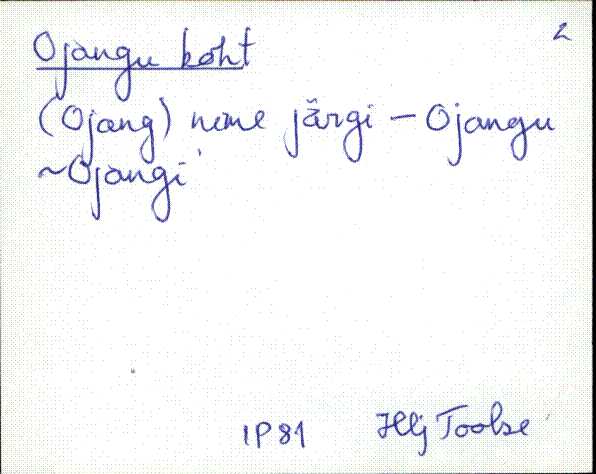 Ojangu koht 2
(Ojang) nime järgi – Ojangu
~Ojangi
IP 81 Hlj Toolse